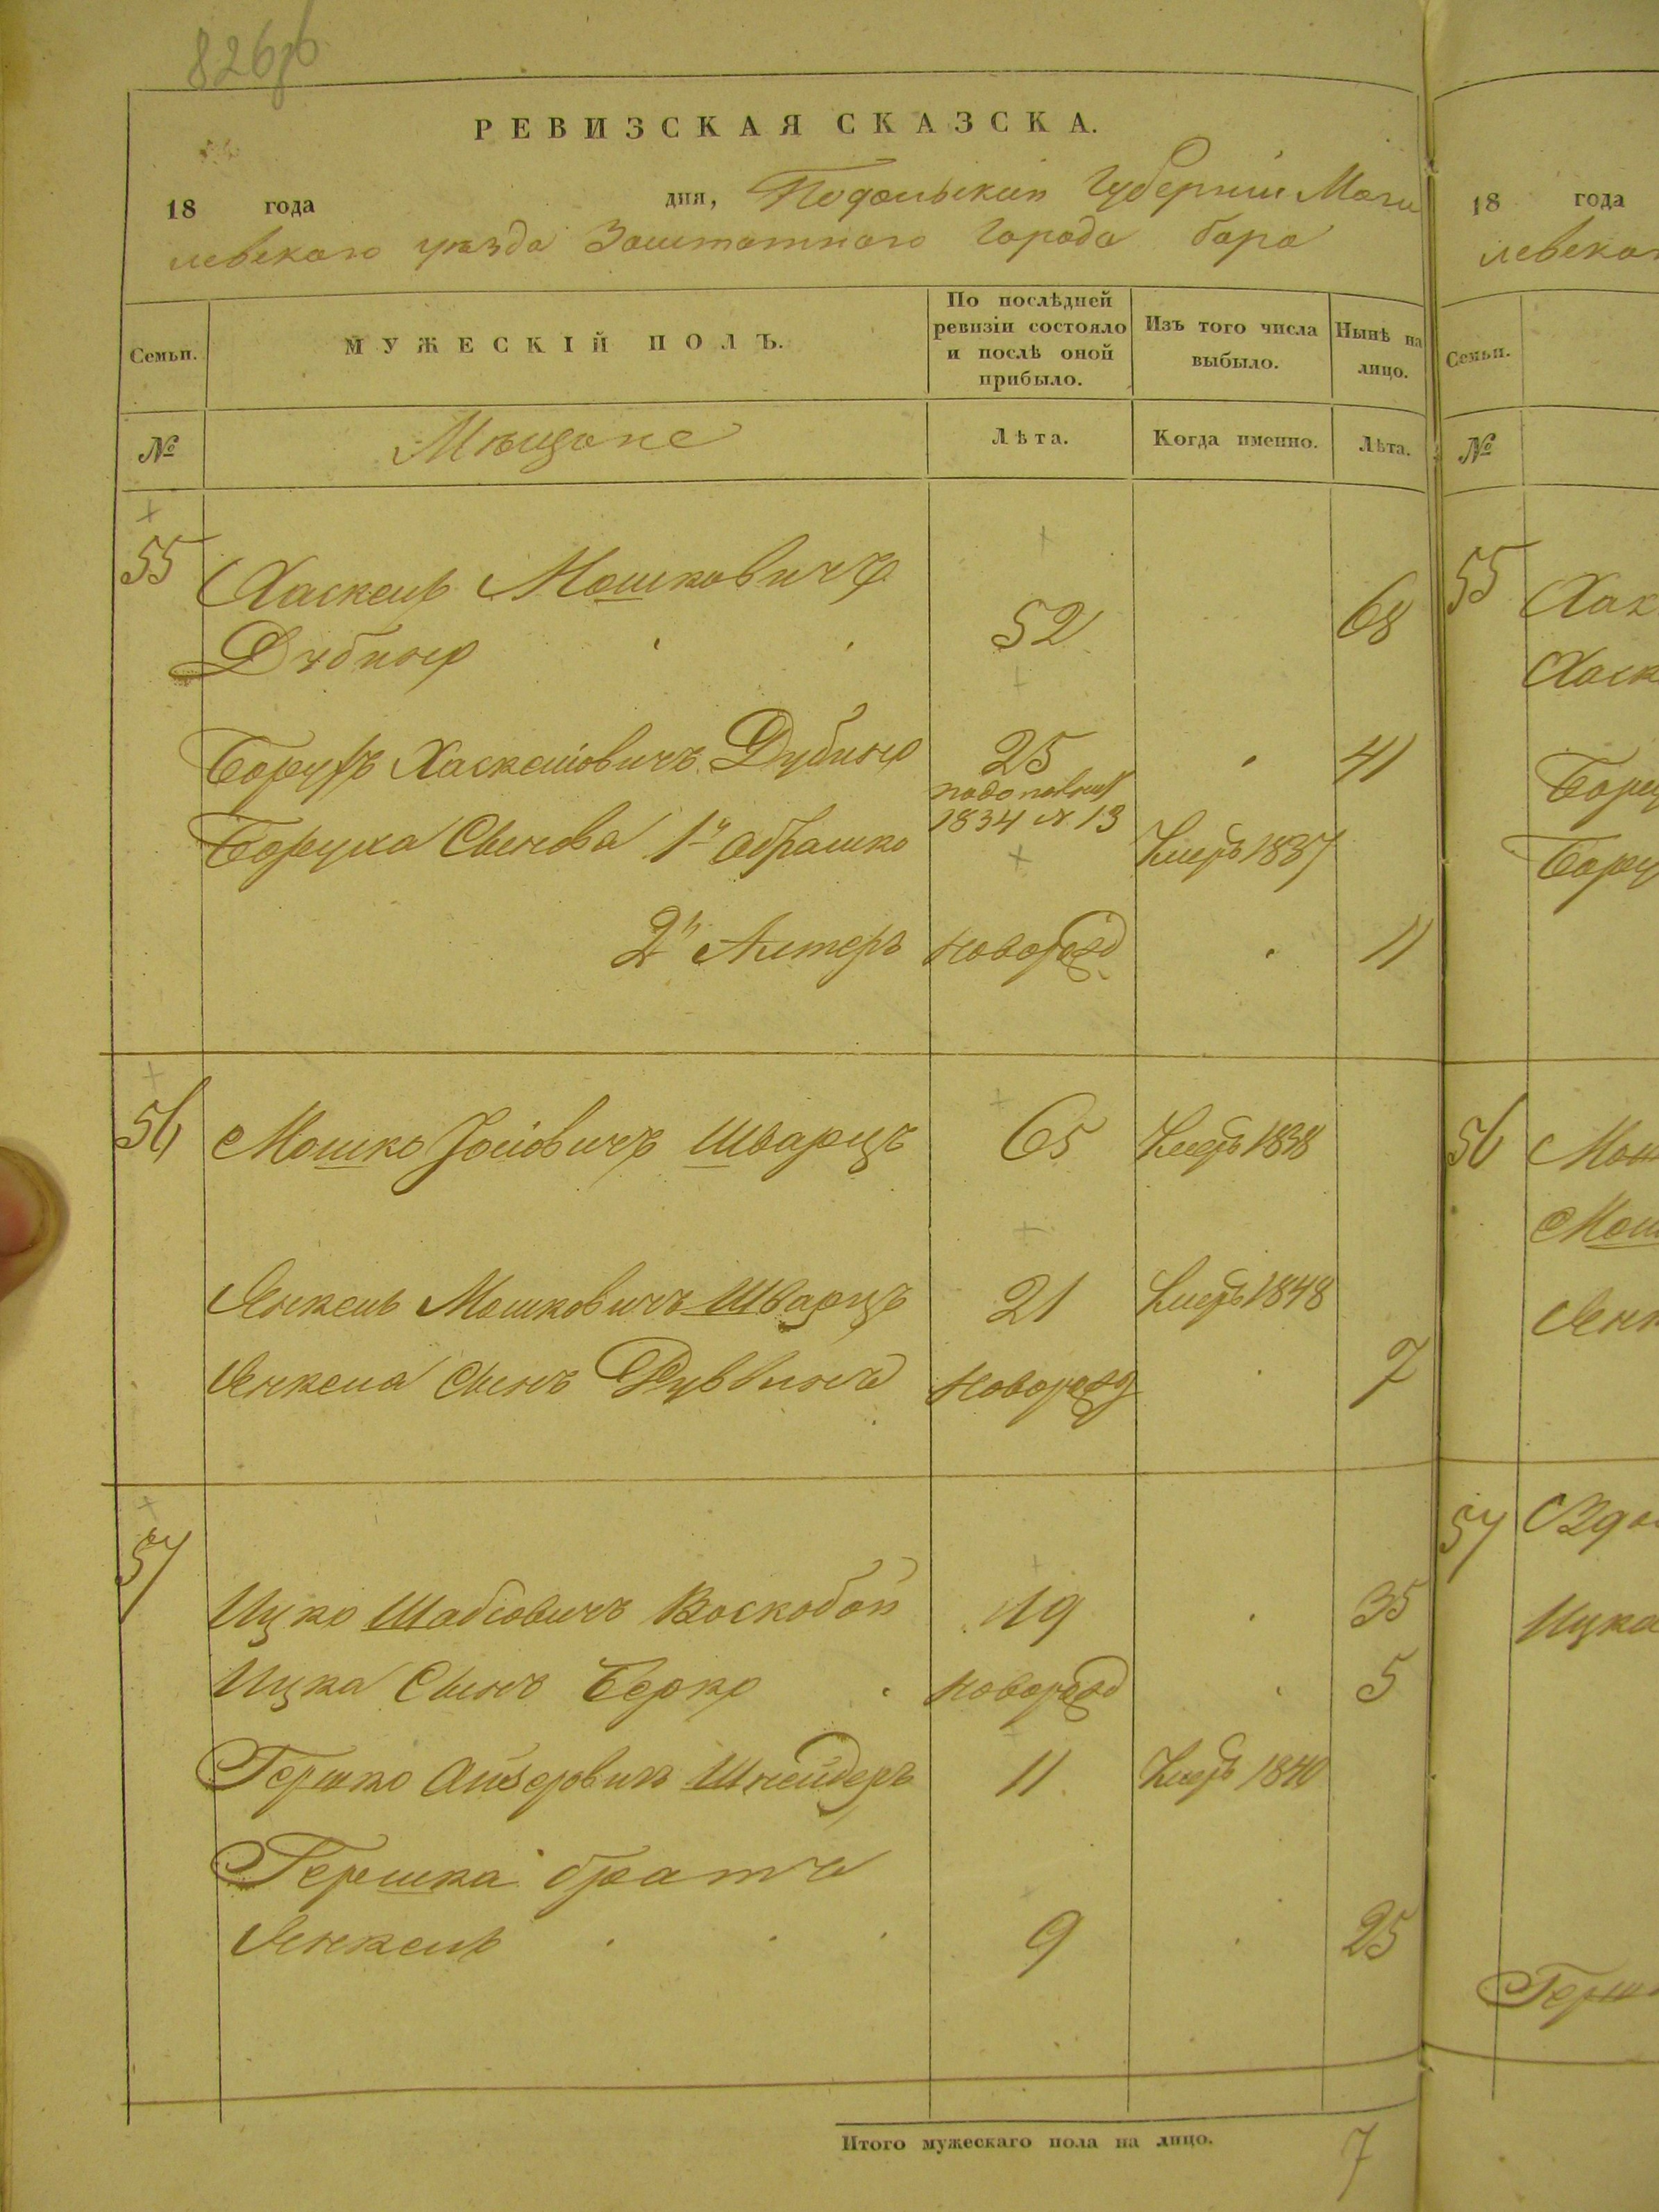 826об
РЕВИЗСКАЯ СКАЗСКА.
18 года дня, Подольскій Губерніи Моги
левскаго уѣзда Заштатнаго Города бара
Семьи.
МУЖЕСКІЙ ПОЛЪ.
По послѣдней
ревизіи состояло
и послѣ оной
прибыло.
Изъ того числа
выбыло.
Нынѣ на
лицо.
№
Мѣщане
Лѣта.
Когда именно.
Лѣта.
55 Хаскель Мошковичъ
Дубнер 52 68
Борухъ Хаскеліовичъ Дубнер 25 41
1834 №. 13
Боруха Сынова 1й Абрашко Умеръ 1837
2й Алтеръ новорожд 11
56 Мошко Іоліовичъ Шварцъ 65 Умеръ 1838
Янкель Мошковичъ Шварцъ 21 Умеръ 1848
Янкеля Сынъ Рувинъ новорожд 7
57
Ицко Шабсовичъ Воскобой 19 35
Ицка Сынъ Берко новорожд 5
Гершко Айзеровичъ Шнейдеръ 11 Умеръ 1840
Гершка братъ
Янкель 9 25
Итого мужескаго пола на лицо. 7
18 года
левскаг
Семьи.
№
55 Хак
Хаск
Бору
Бору
56 Мош
Мош
Янк
57 Вдо
Ицка
Герш